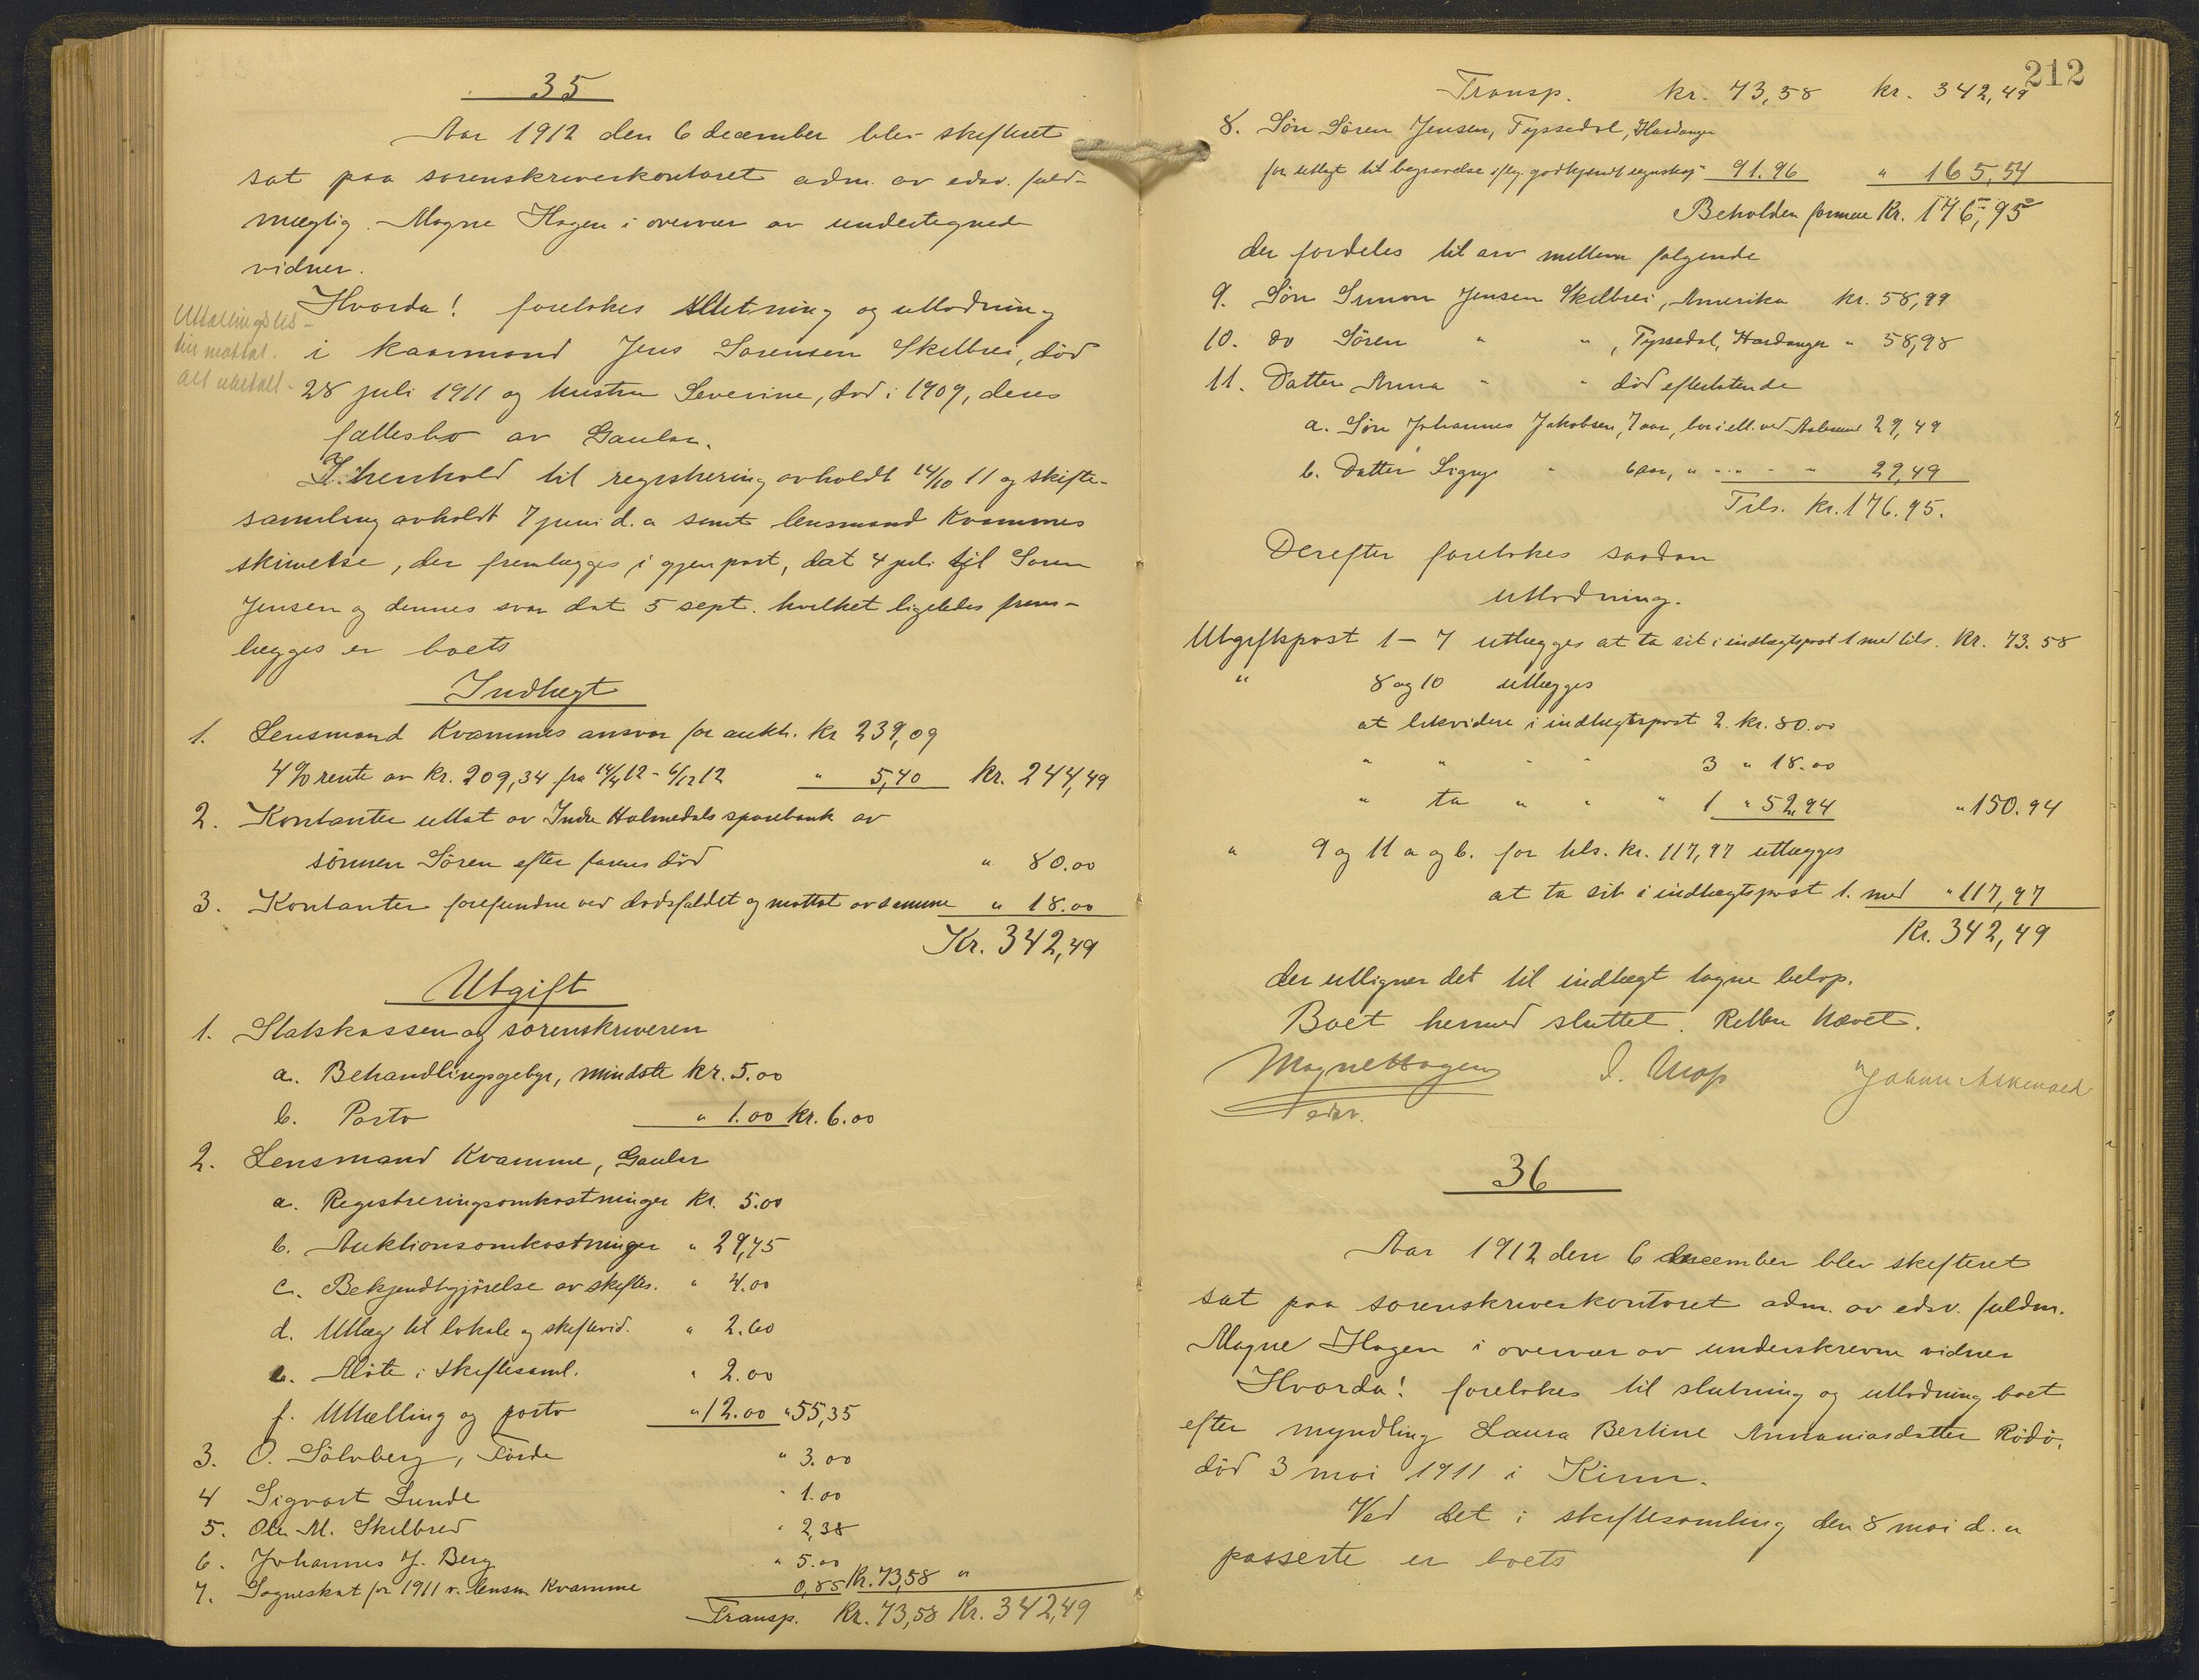 35
Aar 1912 den 6 december blev skifteret
sat paa sorenskriverkontoret adm. av edsv. fuld-
mægtig Magne Hagen i overvær av undertegnede
vidner.
Hvorda! foretokes slutning og utlodning
i kaarmand Jens Sørensen Skilbrei, død
28 juli 1911 og hustru Severine, død i 1909, deres
fællesbo av Gaular.
Utællingslis-
ter mottat.
Alt utbetalt -
I henhold til registrering avholdt 14/10 11 og skifte-
samling avholdt 7 juni d. a samt lensmand Kvammes
skrivelse, der fremlægges i gjenpart, dat 4 juli til Søren
Jensen og dennes svar dat 5 sept. hvilket ligeledes frem-
lægges er boets
Indtægt
1. Lensmand Kvammes ansvar for aukt. kr 239,09
4% rente av kr. 209,34 fra 14/4 12 - 6/12 12 " 5,40 kr. 244,49
2. Kontanter uttat av Indre Holmedals sparebank av
sønnen Søren efter farens død " 80.00
3. Kontanter forefundne ved dødsfaldet og mottat av samme " 18.00
Kr. 342,49
Utgift
1. Statskassen og sorenskriveren
a. Behandlingsgebyr, mindste kr. 5.00
b. Porto " 1.00 kr. 6.00
2. Lensmand Kvamme, Gaular
a. Registreringsomkostninger kr. 5.00
b. Auktionsomkostninger " 29,75
c. Bekjendtgjørelse av skiftes. " 4.00
d. Utlæg til lokale og skiftevid. " 2.60
e. Møte i skiftesaml. " 2.00
f. Uttælling og porto " 12.00 " 55,35
3. O. Sølvberg, Førde " 3.00
4 Sigvart Lunde " 1.00
5. Ole M. Skilbred " 2,38
6. Johannes J. Berg " 5.00
7. Sogneskat for 1911 v. lensm Kvamme 0,85 Kr. 73,58 "
Transp. Kr. 73,58 Kr. 342,49
212
Transp. kr. 73,58 kr. 342,49
8. Søn Søren Jensen, Tyssedal, Hardanger
for utlagt til begravelse iflg. godkjendt regnskap 91.96 " 165,54
Beholden formue Kr. 176,95
der fordeles til arv mellem følgende
9. Søn Simon Jensen Skilbrei, Amerika kr. 58,99
10. do Søren " " , Tyssedal, Hardanger " 58,98
11. Datter Anna " " død efterlatende
a. Søn Johannes Jakobsen, 7 aar, bor i ell. ved Aalesund 29,49
b. Datter Signy " 6 aar, " " " " 29,49
Tils. kr. 176.95.
Derefter foretokes saadan
utlodning.
Utgiftspost 1 - 7 utlægges at ta sit i indtægtspost 1 med tils. Kr. 73.58
" 8 og 10 utlægges
at likvidere i indtægtspost 2. kr. 80.00
" " " " 3 " 18.00
" ta " " " 1 " 52,94 " 150.94
" 9 og 11 a og b. for tils. kr. 117,97 utlægges
at ta sit i indtægtspost 1. med " 117,97
Kr. 342,49
der utligner det til indtægt tagne beløp.
Boet hermed sluttet. Retten hævet.
Magne Hagen
edsv.
36
Aar 1912 den 6 december blev skifteret
sat paa sorenskriverkontoret adm. av edsv. fuldm.
Magne Hagen i overvær av underskrevne vidner
Hvorda! foretokes til slutning og utlodning boet
efter myndling Laura Bertine Annaniasdatter Rødø,
død 3 mai 1911 i Kinn.
Ved det i skiftesamling den 8 mai d. a
passerte er boets